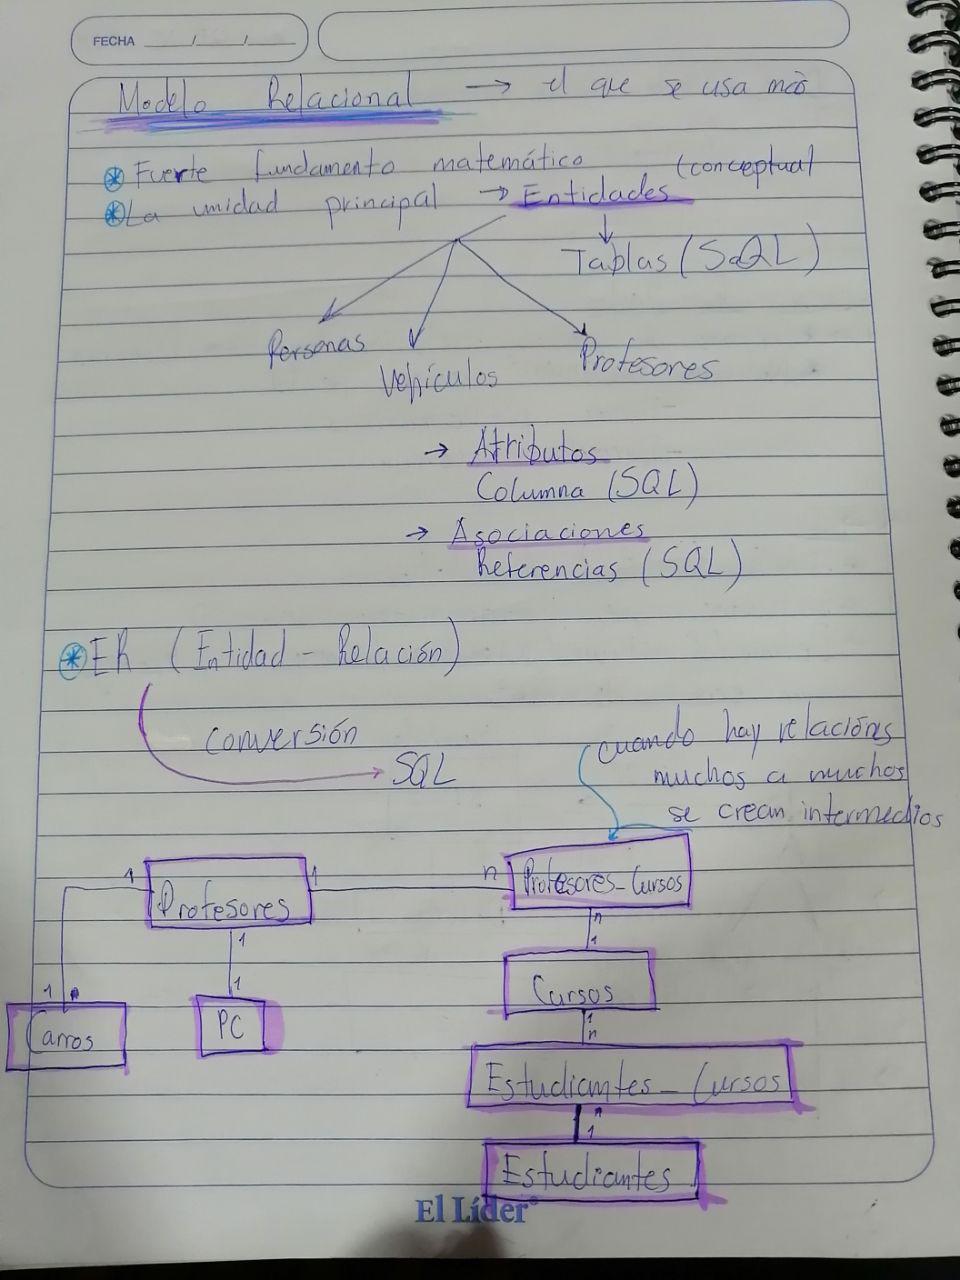 FECHA ___/___/___
Modelo Relacional → el que se usa más
* Fuerte fundamento matemático (conceptual
* La unidad principal → Entidades
Tablas (SQL)
Personas
Vehículos
Profesores
→ Atributos
Columna (SQL)
→ Asociaciones
Referencias (SQL)
* ER (Entidad - Relación)
conversión
SQL
cuando hay relacións
muchos a muchos
se crean intermedios
1 Profesores 1
n Profesores_Cursos
1
1
n
1
1
Carros
PC
Cursos
1
n
Estudiantes_Cursos
n
1
Estudiantes
El Líder